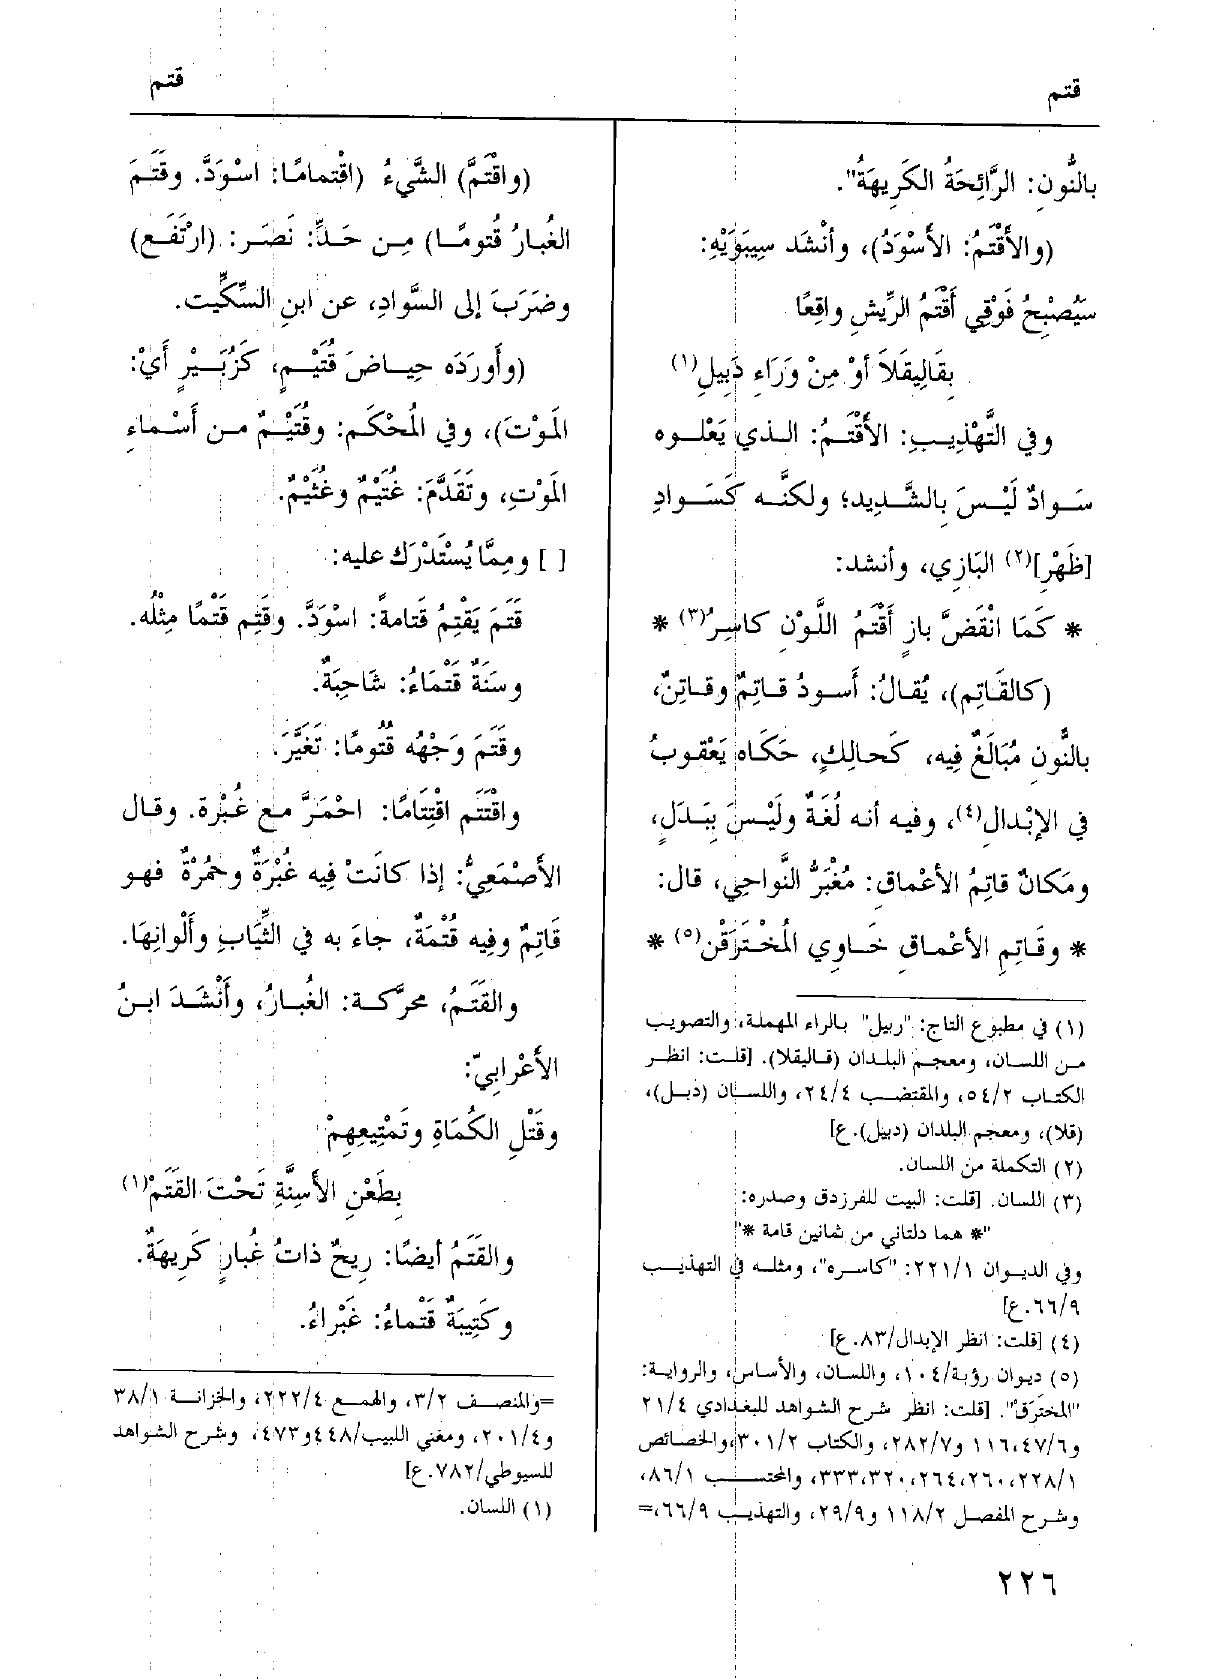 قتم
قتم
بالنُّونِ: الرَّائِحَةُ الكَرِيهَةُ".
(والأَقْتَمُ: الأَسْوَدُ)، وأَنْشَد سِيبَوَيْهِ:
سَيُصْبِحُ فَوْقِي أَقْتَمُ الرِّيشِ واقِعًا
بِقَالِيقَلاَ أَوْ مِنْ وَرَاءِ دَبِيلِ(١)
وفي التَّهْذِيبِ: الأَقْتَمُ: الذي يَعْلُوه
سَوادٌ لَيْسَ بِالشَّدِيد؛ ولكنَّه كَسَوادِ
[ظَهْرِ](٢) البَازِي، وأنشد:
* كَمَا انْقَضَّ بازٍ أَقْتَمُ اللَّوْنِ كاسِرُ(٣) *
(كالقَاتِم)، يُقالُ: أَسودُ قاتِمٌ وقاتِنٌ،
بالنُّونِ مُبَالَغٌ فِيه، كَحالِكٍ، حَكَاه يَعْقوبُ
في الإِبْدالِ(٤)، وفيه أنه لُغَةٌ ولَيْسَ بِبَدَلٍ،
ومَكانٌ قاتِمُ الأَعْماق: مُغْبَرُّ النَّواحِي، قال:
* وقَاتِمِ الأَعْماقِ خَاوِي المُخْتَرَقْن(٥) *
(١) في مطبوع التاج: "ربيل" بالراء المهملة، والتصويب
من اللسان، ومعجم البلدان (قاليقلا). [قلت: انظر
الكتاب ٥٤/٢، والمقتضب ٢٤/٤، واللسان (دبل)،
(قلا)، ومعجم البلدان (دبيل).ع]
(٢) التكملة من اللسان.
(٣) اللسان. [قلت: البيت للفرزدق وصدره:
"* هما دلتاني من ثمانين قامة *"
وفي الديوان ٢٢١/١: "كاسره"، ومثله في التهذيب
٦٦/٩.ع]
(٤) [قلت: انظر الإبدال/٨٣.ع]
(٥) ديوان رؤبة/١٠٤، واللسان، والأساس، والرواية:
"المخترَقْ". [قلت: انظر شرح الشواهد للبغدادي ٢١/٤
و٤٧/٦، ١١٦ و٢٨٢/٧، والكتاب ٣٠١/٢، والخصائص
٢٢٨/١، ٢٦٠، ٢٦٤، ٣٢٠، ٣٣٣، والمحتسب ٨٦/١،
وشرح المفصل ١١٨/٢ و٢٩/٩، والتهذيب ٦٦/٩،=
(واقْتَمَّ) الشَّيءُ (اقْتِمامًا: اسْوَدَّ. وقَتَمَ
الغُبارُ قُتومًا) مِن حَدِّ: نَصَر: (ارْتَفَع)
وضَرَبَ إلى السَّوادِ، عن ابنِ السِّكِّيت.
(وأَورَدَه حِياضَ قُتَيْمٍ، كَزُبَيْرٍ أَيْ:
المَوْت)، وفي المُحْكَم: وقُتَيْمٌ من أَسْماءِ
المَوْتِ، وتَقدَّمَ: غُتَيْمٌ وغُثَيْمٌ.
[ ] ومِمَّا يُسْتَدْرَك عليه:
قَتَمَ يَقْتِمُ قَتامةً: اسْوَدَّ. وقَتِم قَتْمًا مِثْلُه.
وسَنَةٌ قَتْمَاءُ: شَاحِبَةٌ.
وقَتَمَ وَجْهُه قُتُومًا: تَغَيَّرَ.
واقْتَتَم اقْتِتَامًا: احْمَرَّ مع غُبْرة. وقال
الأَصْمَعِيُّ: إذا كانَتْ فِيه غُبْرَةٌ وحُمْرَةٌ فهو
قَاتِمٌ وفِيه قُتْمَةٌ، جاءَ به في الثِّيَابِ وأَلْوانِهَا.
والقَتَمُ، محرَّكة: الغُبارُ، وأَنْشَدَ ابنُ
الأَعْرابيّ:
وقَتْلِ الكُمَاةِ وتَمْتِيعِهِمْ
بِطَعْنِ الأَسِنَّةِ تَحْتَ القَتَمْ(١)
والقَتَمُ أيضًا: رِيحٌ ذاتُ غُبارٍ كَرِيهَةٌ.
وكَتِيبَةٌ قَتْماءُ: غَبْراءُ.
=والمنصف ٣/٢، والهمع ٢٢٢/٤، والخزانة ٣٨/١
و٢٠١/٤، ومغني اللبيب/٤٤٨ و٤٧٣، وشرح الشواهد
للسيوطي/٧٨٢.ع]
(١) اللسان.
٢٢٦